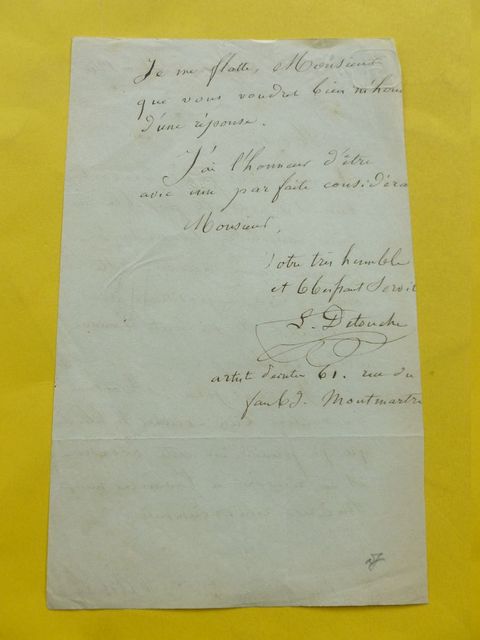 Je me flatte, Monsieur
que vous voudrez bien m'hono
d'une réponse.
J'ai l'honneur d'être
avec une parfaite considéra
Monsieur,
Votre très humble
et Obéissant Servit
L. Detouche
artiste peintre 61. rue du
faub. Montmartre